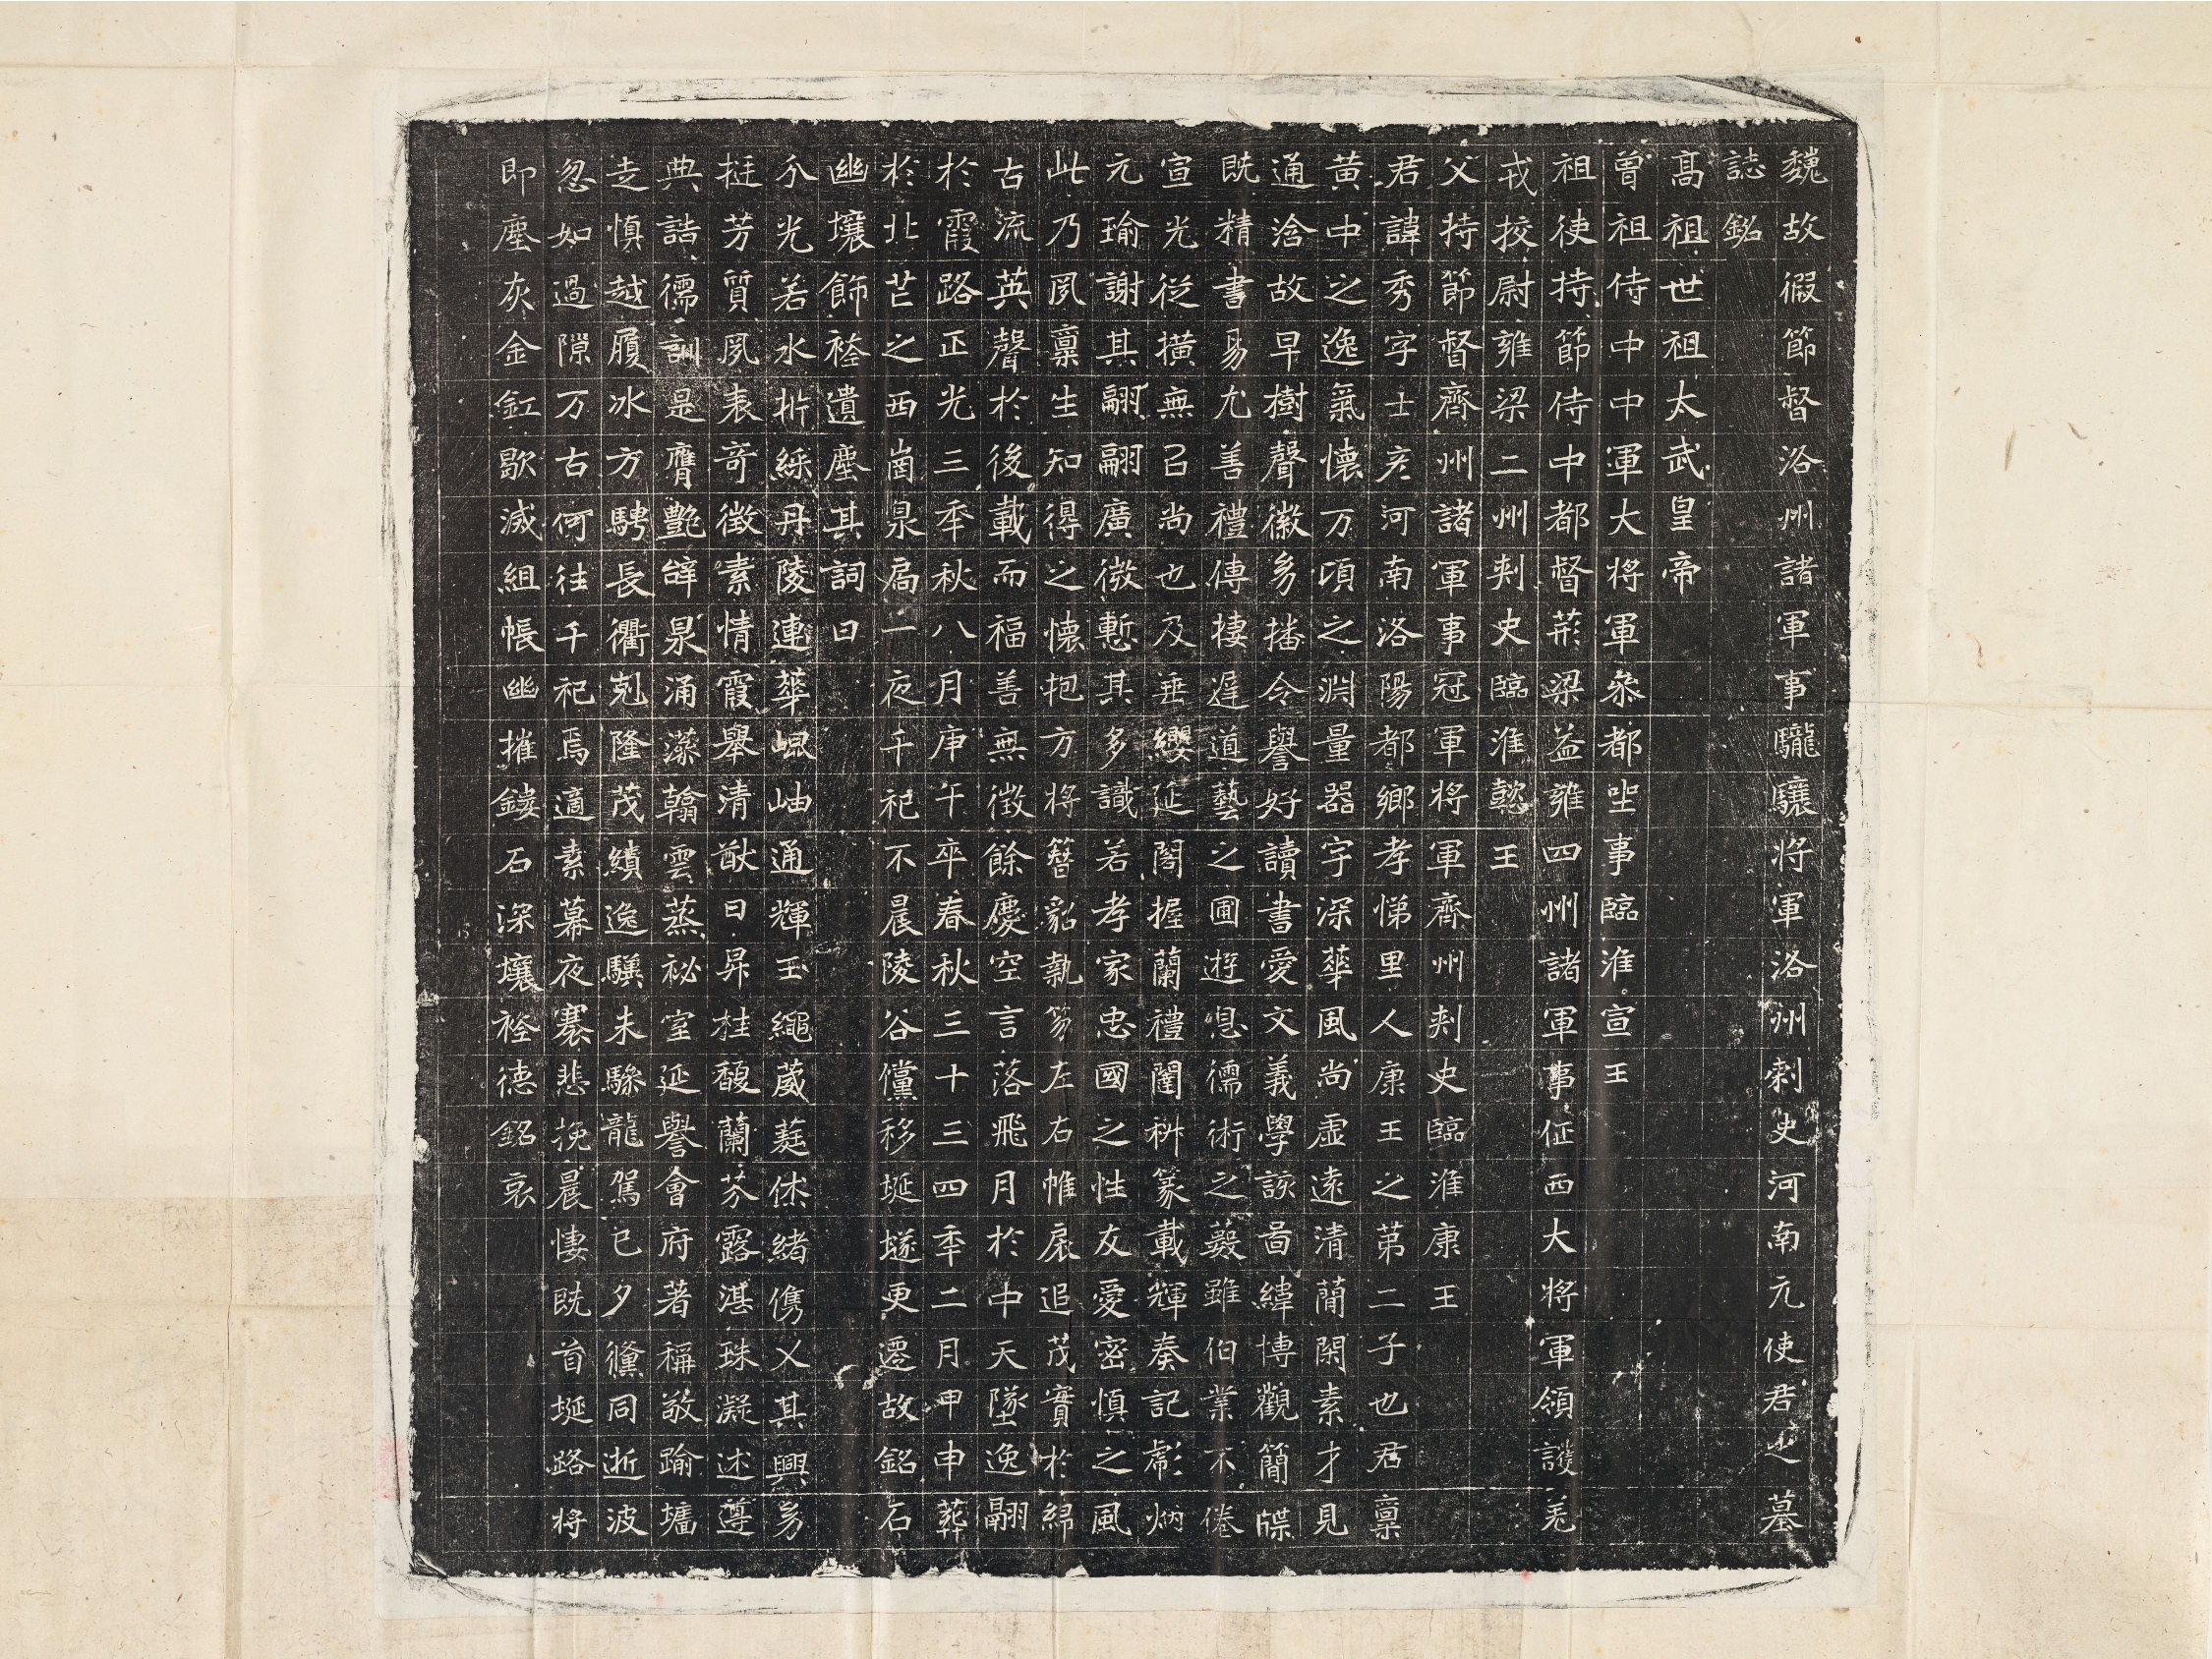 魏故假節督洛州諸軍事驤驤將軍洛州刺史河南元使君之墓
誌銘
高祖世祖太武皇帝
曾祖侍中中軍大將軍叅都坐事臨淮宣王
祖使持節侍中都督荊梁益雍四州諸軍事征西大將軍領護羌
戎校尉雍梁二州刺史臨淮懿王
父持節督齊州諸軍事冠軍將軍齊州刺史臨淮康王
君諱秀字士彦河南洛陽都鄉孝悌里人康王之第二子也君稟
黃中之逸氣懷万頃之淵量器宇深華風尚虛遠清蕳閑素才見
通洽故早樹聲徽夛播令譽好讀書愛文義學該啚緯博觀簡牒
既精書易尤善禮傳棲遲道藝之圃遊息儒術之藪雖伯業不倦
宣光從橫無㠯尚也及垂纓延閣握蘭禮闈枡篆載輝奏記彪炳
元瑜謝其翩翩廣微慙其多識若孝家忠國之性友愛密慎之風
此乃夙稟生知得之懷抱方將簪貂執笏左右帷扆追茂實於綿
古流英聲於後載而福善無徵餘慶空言落飛月於中天墜逸翮
於霞路正光三秊秋八月庚午卒春秋三十三四秊二月甲申葬
於北芒之西崗泉扃一夜千祀不晨陵谷儻移埏燧更遷故銘石
幽壤飾袿遺塵其詞曰
介光若水折綵丹陵連華崐岫通輝玉繩葳蕤休緒儁乂其興夛
挺芳質夙表奇徵素情霞舉清猷日昇桂馥蘭芬露湛珠凝述遵
典誥儒訓是膺艷辝泉涌藻翰雲蒸祕室延譽會府著稱敬踰墉
走慎越履冰方騁長衢剋隆茂績逸驥未驂龍駕已夕儻同逝波
忽如過隙万古何往千祀焉適素幕夜褰悲挽晨悽旣首埏路將
即塵灰金釭歇滅組帳幽摧鏤石深壤袿德銘哀